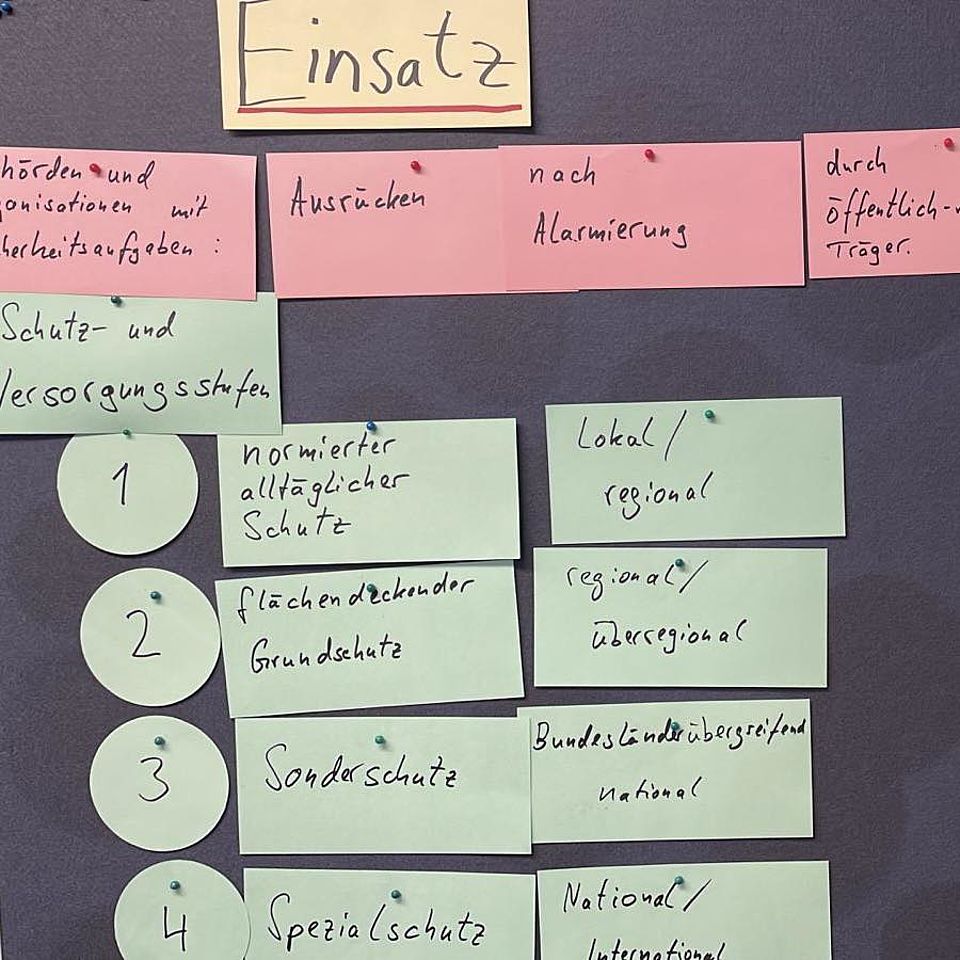 Einsatz
hörden und
anisationen mit
herheitsaufgaben:
Ausrücken
nach
Alarmierung
durch
öffentlich-
Träger.
Schutz- und
Versorgungsstufen
1
normierter
alltäglicher
Schutz
Lokal/
regional
2
flächendeckender
Grundschutz
regional/
überregional
3
Sonderschutz
Bundesländerübergreifend
national
4
Spezialschutz
National/
International